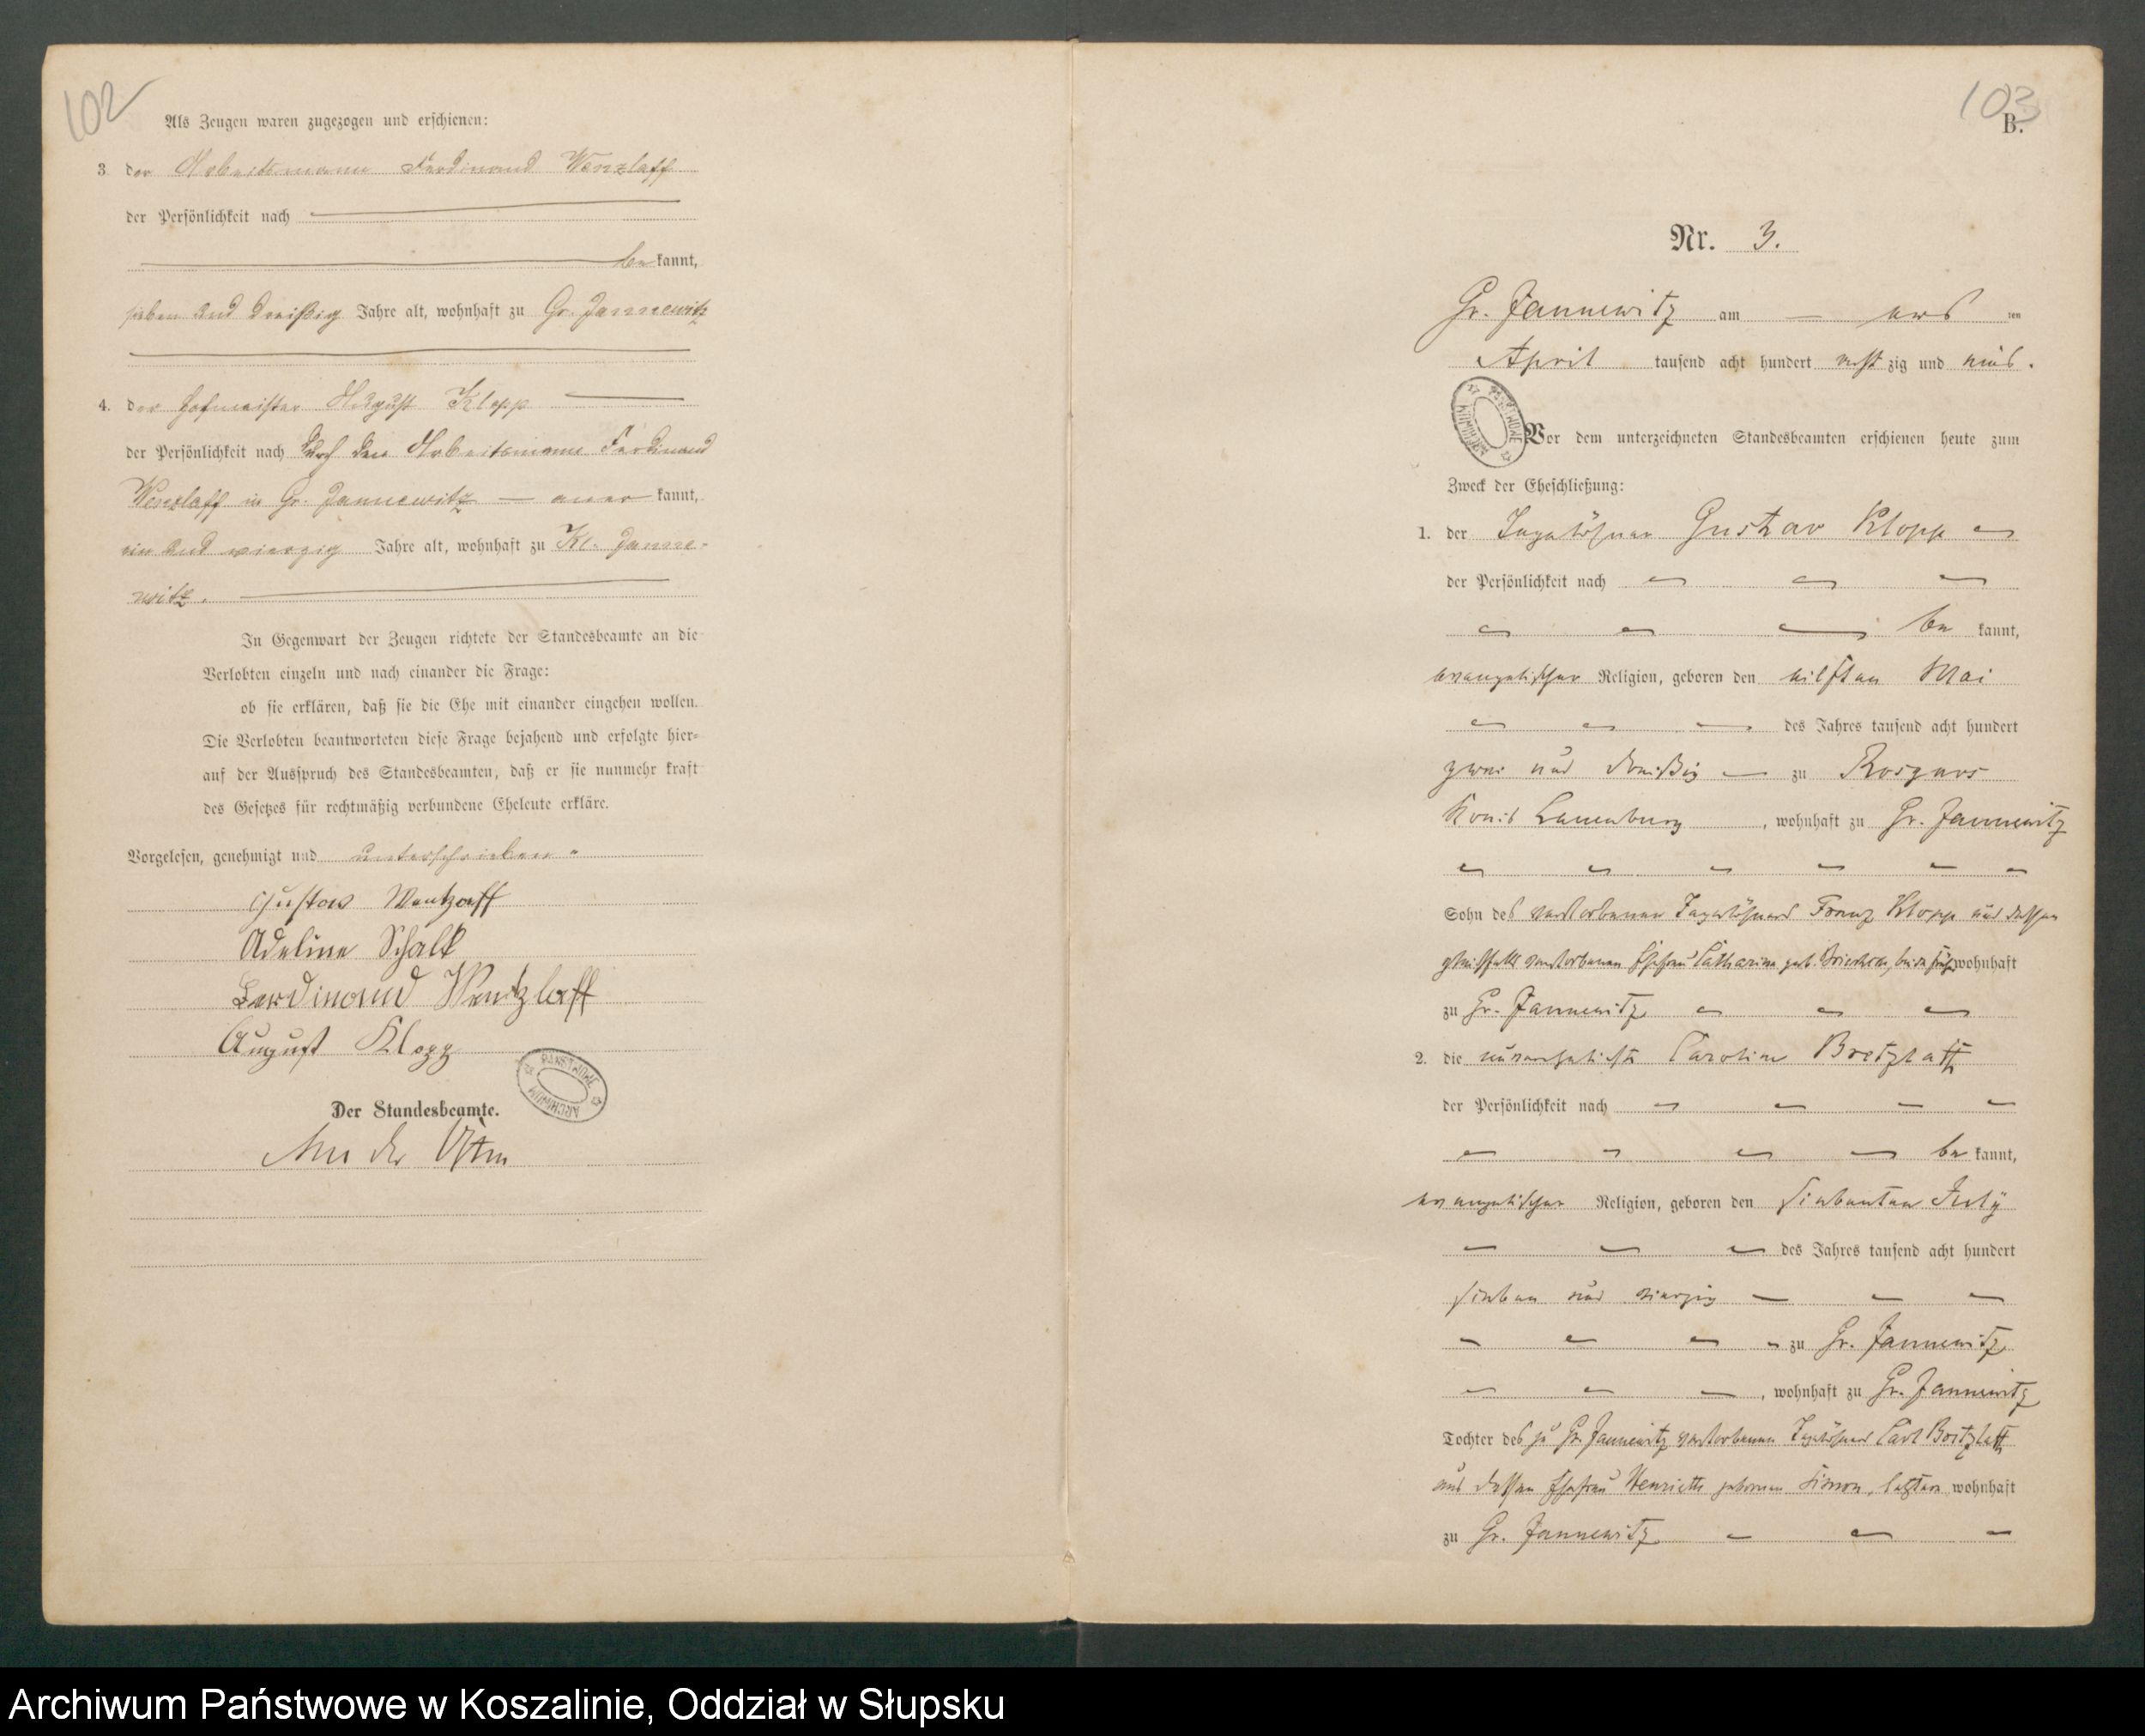 102
Als Zeugen waren zugezogen und erschienen:
3. der Arbeitsmann Ferdinand Wenzlaff
der Persönlichkeit nach
be kannt,
sieben und dreißig Jahre alt, wohnhaft zu Gr. Jannewitz
4. der Hofmeister August Klopp
der Persönlichkeit nach durch den Arbeitsmann Ferdinand
Wenzlaff in Gr. Jannewitz — aner kannt,
ein und vierzig Jahre alt, wohnhaft zu Kl. Janne-
witz.
In Gegenwart der Zeugen richtete der Standesbeamte an die
Verlobten einzeln und nach einander die Frage:
ob sie erklären, daß sie die Ehe mit einander eingehen wollen.
Die Verlobten beantworteten diese Frage bejahend und erfolgte hier-
auf der Ausspruch des Standesbeamten, daß er sie nunmehr kraft
des Gesetzes für rechtmäßig verbundene Eheleute erkläre.
Vorgelesen, genehmigt und unterschrieben
Gustav
Adeline Schalk
Ferdinand Wentzlaff
August Klopp
ARCHIWUM PAŃSTWOWE
Der Standesbeamte.
103
B.
Nr. 3.
Gr. Jannewitz am — ten
April tausend acht hundert zig und
ARCHIWUM PAŃSTWOWE
Vor dem unterzeichneten Standesbeamten erschienen heute zum
Zweck der Eheschließung:
1. der Tagelöhner Gustav Klopp
der Persönlichkeit nach
be kannt,
evangelischer Religion, geboren den eilften Mai
des Jahres tausend acht hundert
zwei und dreißig — zu Rosgars
Kreis Lauenburg, wohnhaft zu Gr. Jannewitz
Sohn des verstorbenen Tagelöhners Franz Klopp und dessen
gleichfalls verstorbenen Ehefrau Catharina geb. wohnhaft
zu Gr. Jannewitz
2. die unverehelichte Caroline Bretzlaff
der Persönlichkeit nach
be kannt,
evangelischer Religion, geboren den siebenten July
des Jahres tausend acht hundert
sieben und vierzig
zu Gr. Jannewitz
, wohnhaft zu Gr. Jannewitz
Tochter des zu Gr. Jannewitz verstorbenen Tagelöhners Carl Bretzlaff
und dessen Ehefrau Henriette geborenen Simon, letztere wohnhaft
zu Gr. Jannewitz
Archiwum Państwowe w Koszalinie, Oddział w Słupsku